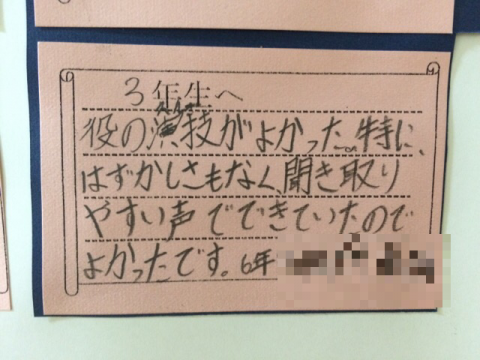 3年生へ
役の演技がよかった。特に、
はずかしさもなく、聞き取り
やすい声でできていたので
よかったです。6年